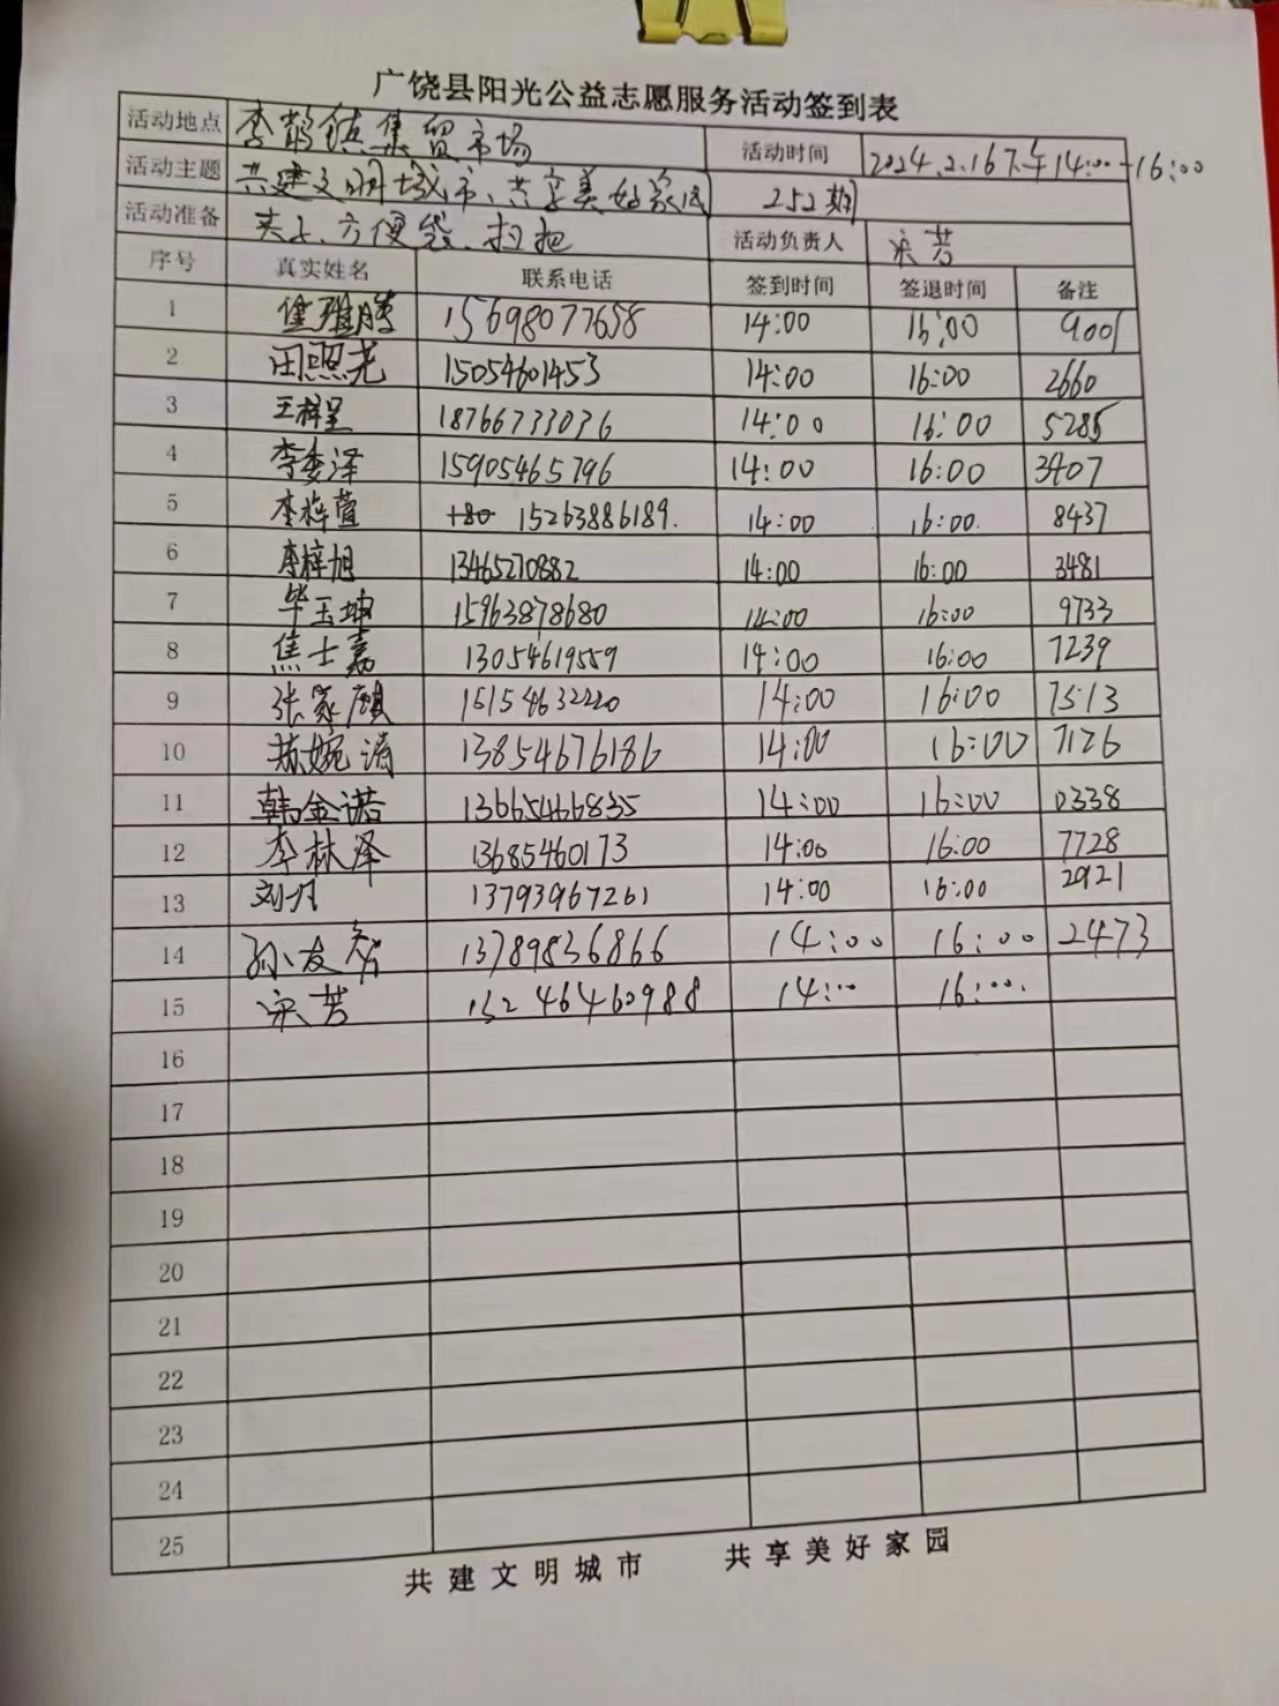 广饶县阳光公益志愿服务活动签到表
活动地点 李鹊镇集贸市场 活动时间 2024.2.16下午14:00-16:00
活动主题 共建文明城市、共享美好家园 252期
活动准备 夹子、方便袋、扫把 活动负责人 宋芳
序号 真实姓名 联系电话 签到时间 签退时间 备注
1 15698077658 14:00 16:00 9001
2 田照尧 15054601453 14:00 16:00 2660
3 王梓呈 18766733036 14:00 16:00 5285
4 李委泽 15905465796 14:00 16:00 3407
5 李梓萱 +80 15263886189. 14:00 16:00. 8437
6 李梓旭 13465270882 14:00 16:00 3481
7 毕玉坤 15963878680 14:00 16:00 9733
8 焦士嘉 13054619559 14:00 16:00 7239
9 张家颀 15154632220 14:00 16:00 7513
10 婉清 13854676186 14:00 16:00 7126
11 韩金诺 13665466835 14:00 16:00 0338
12 李林泽 13685460173 14:00 16:00 7728
13 刘月 13793967261 14:00 16:00 2921
14 孙友 13789836866 14:00 16:00 2473
15 宋芳 15246460988 14:00 16:00.
16
17
18
19
20
21
22
23
24
25
共建文明城市 共享美好家园